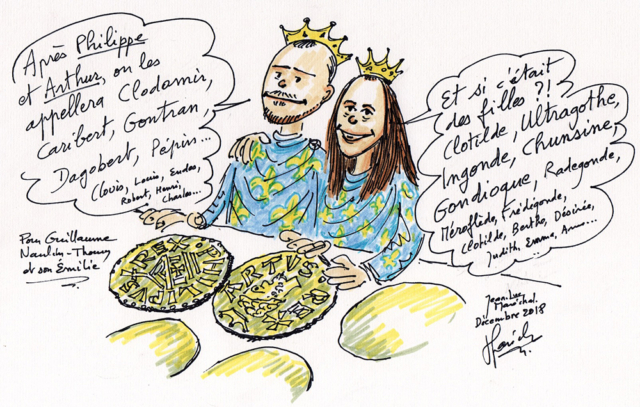 Après Philippe
et Arthur, on les
appellera Clodomir,
Caribert, Gontran,
Dagobert, Pépin...
Clovis, Louis, Eudes,
Robert, Henri,
Charles...
Et si c'était
des filles ?!
Clotilde, Ultragothe,
Ingonde, Chunsine,
Gondioque, Radegonde,
Méroflède, Frédégonde,
Clotilde, Berthe, Désirée,
Judith, Emma, Anne...
Pour Guillaume
et son Émilie
REX
ARTVS
Jean-Luc
Maréchal
Décembre 2018